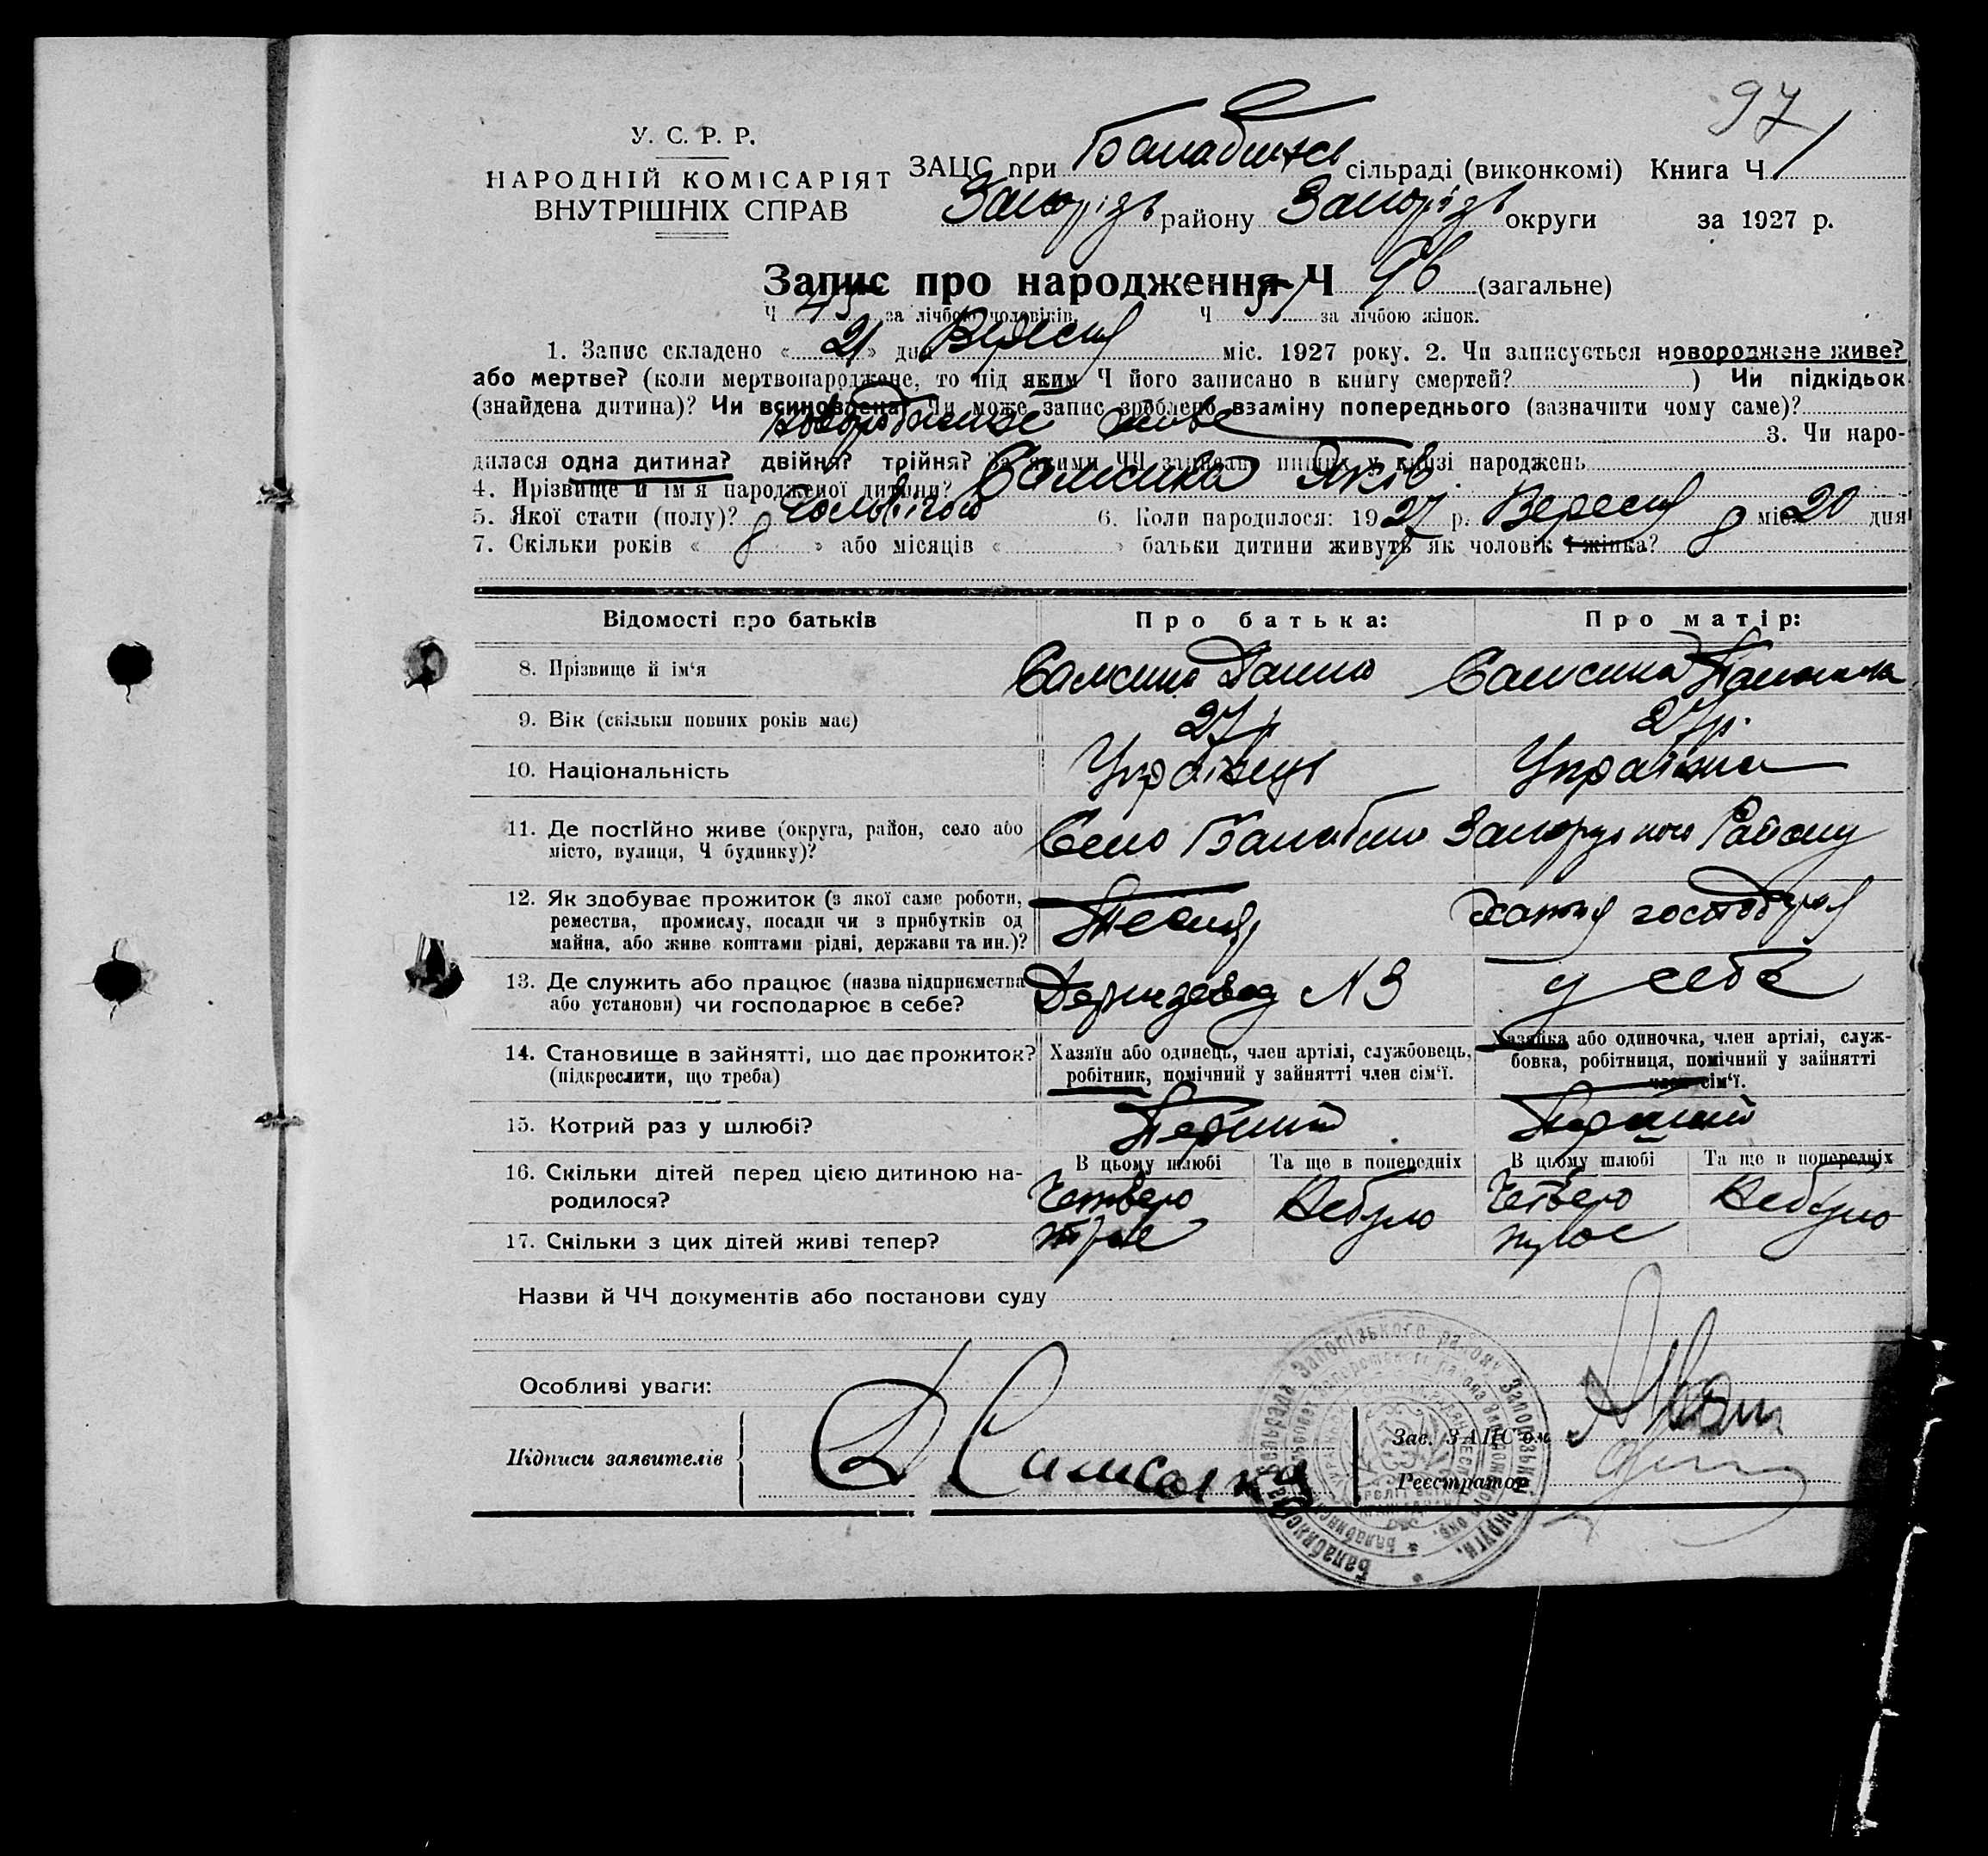 97
У. С. Р. Р.
НАРОДНІЙ КОМІСАРІЯТ
ВНУТРІШНІХ СПРАВ
ЗАЦС при сільраді (виконкомі) Книга Ч 1
Запорізь району Запорізь округи за 1927 р.
Запис про народження Ч 96 (загальне)
Ч 45 за лічбою чоловіків. Ч 51 за лічбою жінок.
1. Запис складено « 21 » дня Вересня міс. 1927 року. 2. Чи записується новороджене живе?
або мертве? (коли мертвонароджене, то під яким Ч його записано в книгу смертей? ) Чи підкідьок
(знайдена дитина)? Чи всиновлена? Чи може запис зроблено взаміну попереднього (зазначити чому саме)?
новороджене живе 3. Чи наро-
дилася одна дитина? двійня? трійня? За якими ЧЧ записано инших у книзі народжень
4. Прізвище й ім'я народженої дитини? Яків
5. Якої стати (полу)? 6. Коли народилося: 1927 р. Вересня міс. 20 дня
7. Скільки років « 8 » або місяців « » батьки дитини живуть як чоловік і жінка? 8
Відомості про батьків Про батька: Про матір:
8. Прізвище й ім'я
9. Вік (скільки повних років має) 27 р 27 р.
10. Національність Українець Українка
11. Де постійно живе (округа, район, село або
місто, вулиця, Ч будинку)? Село Запорузького Району
12. Як здобуває прожиток (з якої саме роботи,
ремества, промислу, посади чи з прибутків од
майна, або живе коштами рідні, держави та ин.)?
13. Де служить або працює (назва підприємства
або установи) чи господарює в себе? N 3 у себе
14. Становище в зайнятті, що дає прожиток?
(підкреслити, що треба)
Хазяїн або одинець, член артілі, службовець,
робітник, помічний у зайнятті член сім'ї.
Хазяйка або одиночка, член артілі, служ-
бовка, робітниця, помічний у зайнятті
член сім'ї.
15. Котрий раз у шлюбі? Перший Перший
16. Скільки дітей перед цією дитиною на-
родилося?
В цьому шлюбі Та ще в попередніх В цьому шлюбі Та ще в попередніх
Четверо Небуло Четверо Небуло
17. Скільки з цих дітей живі тепер? трое трое
Назви й ЧЧ документів або постанови суду
Особливі уваги:
Підписи заявителів
Зав. ЗАЦС'ом
Реєстратор